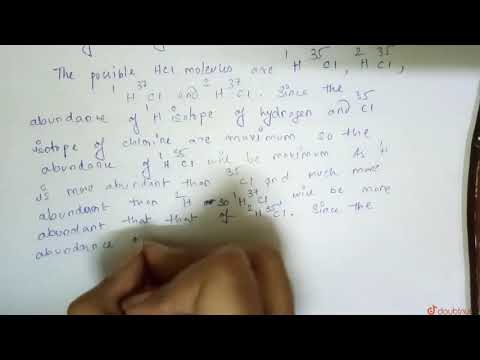 The possible HCl molecules are ¹H ³⁵Cl, ²H ³⁵Cl,
¹H ³⁷Cl and ²H ³⁷Cl. Since the
abundance of ¹H isotope of hydrogen and ³⁵Cl
isotope of chlorine are maximum so the
abundance of ¹H ³⁵Cl will be maximum As ¹H
is more abundant than ³⁵Cl and much more
abundant than ²H so ¹H ³⁷Cl will be more
abundant that that of ²H ³⁵Cl. Since the
abundance
doubtnut